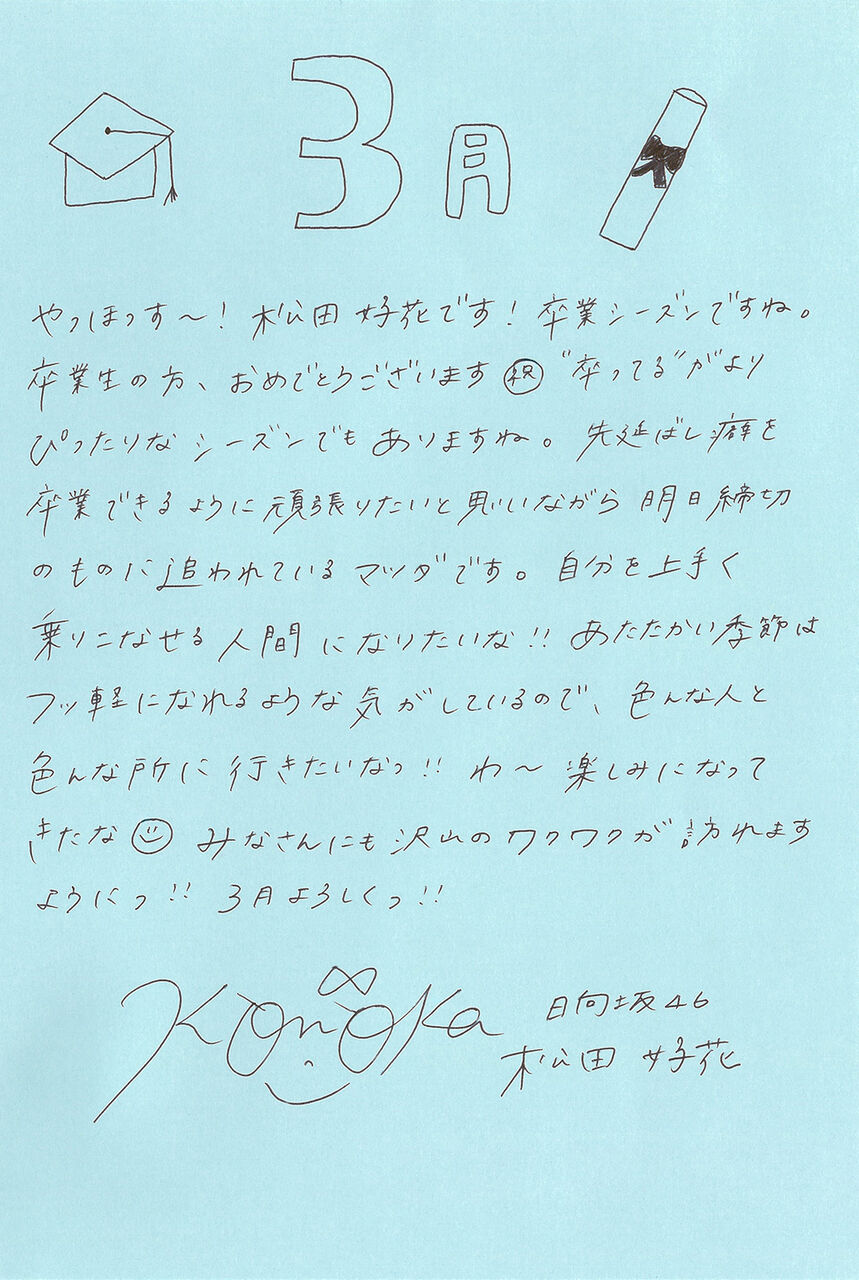 3月
やっほっす〜！松田好花です！卒業シーズンですね。
卒業生の方、おめでとうございます㊗"卒ってる"がより
ぴったりなシーズンでもありますね。先延ばし癖を
卒業できるように頑張りたいと思いながら明日締切
のものに追われているマツダです。自分を上手く
乗りこなせる人間になりたいな!!あたたかい季節は
フッ軽になれるような気がしているので、色んな人と
色んな所に行きたいなっ!!わ〜楽しみになって
きたな みなさんにも沢山のワクワクが訪れます
ようにっ!!3月よろしくっ!!
Konoka
日向坂46
松田好花